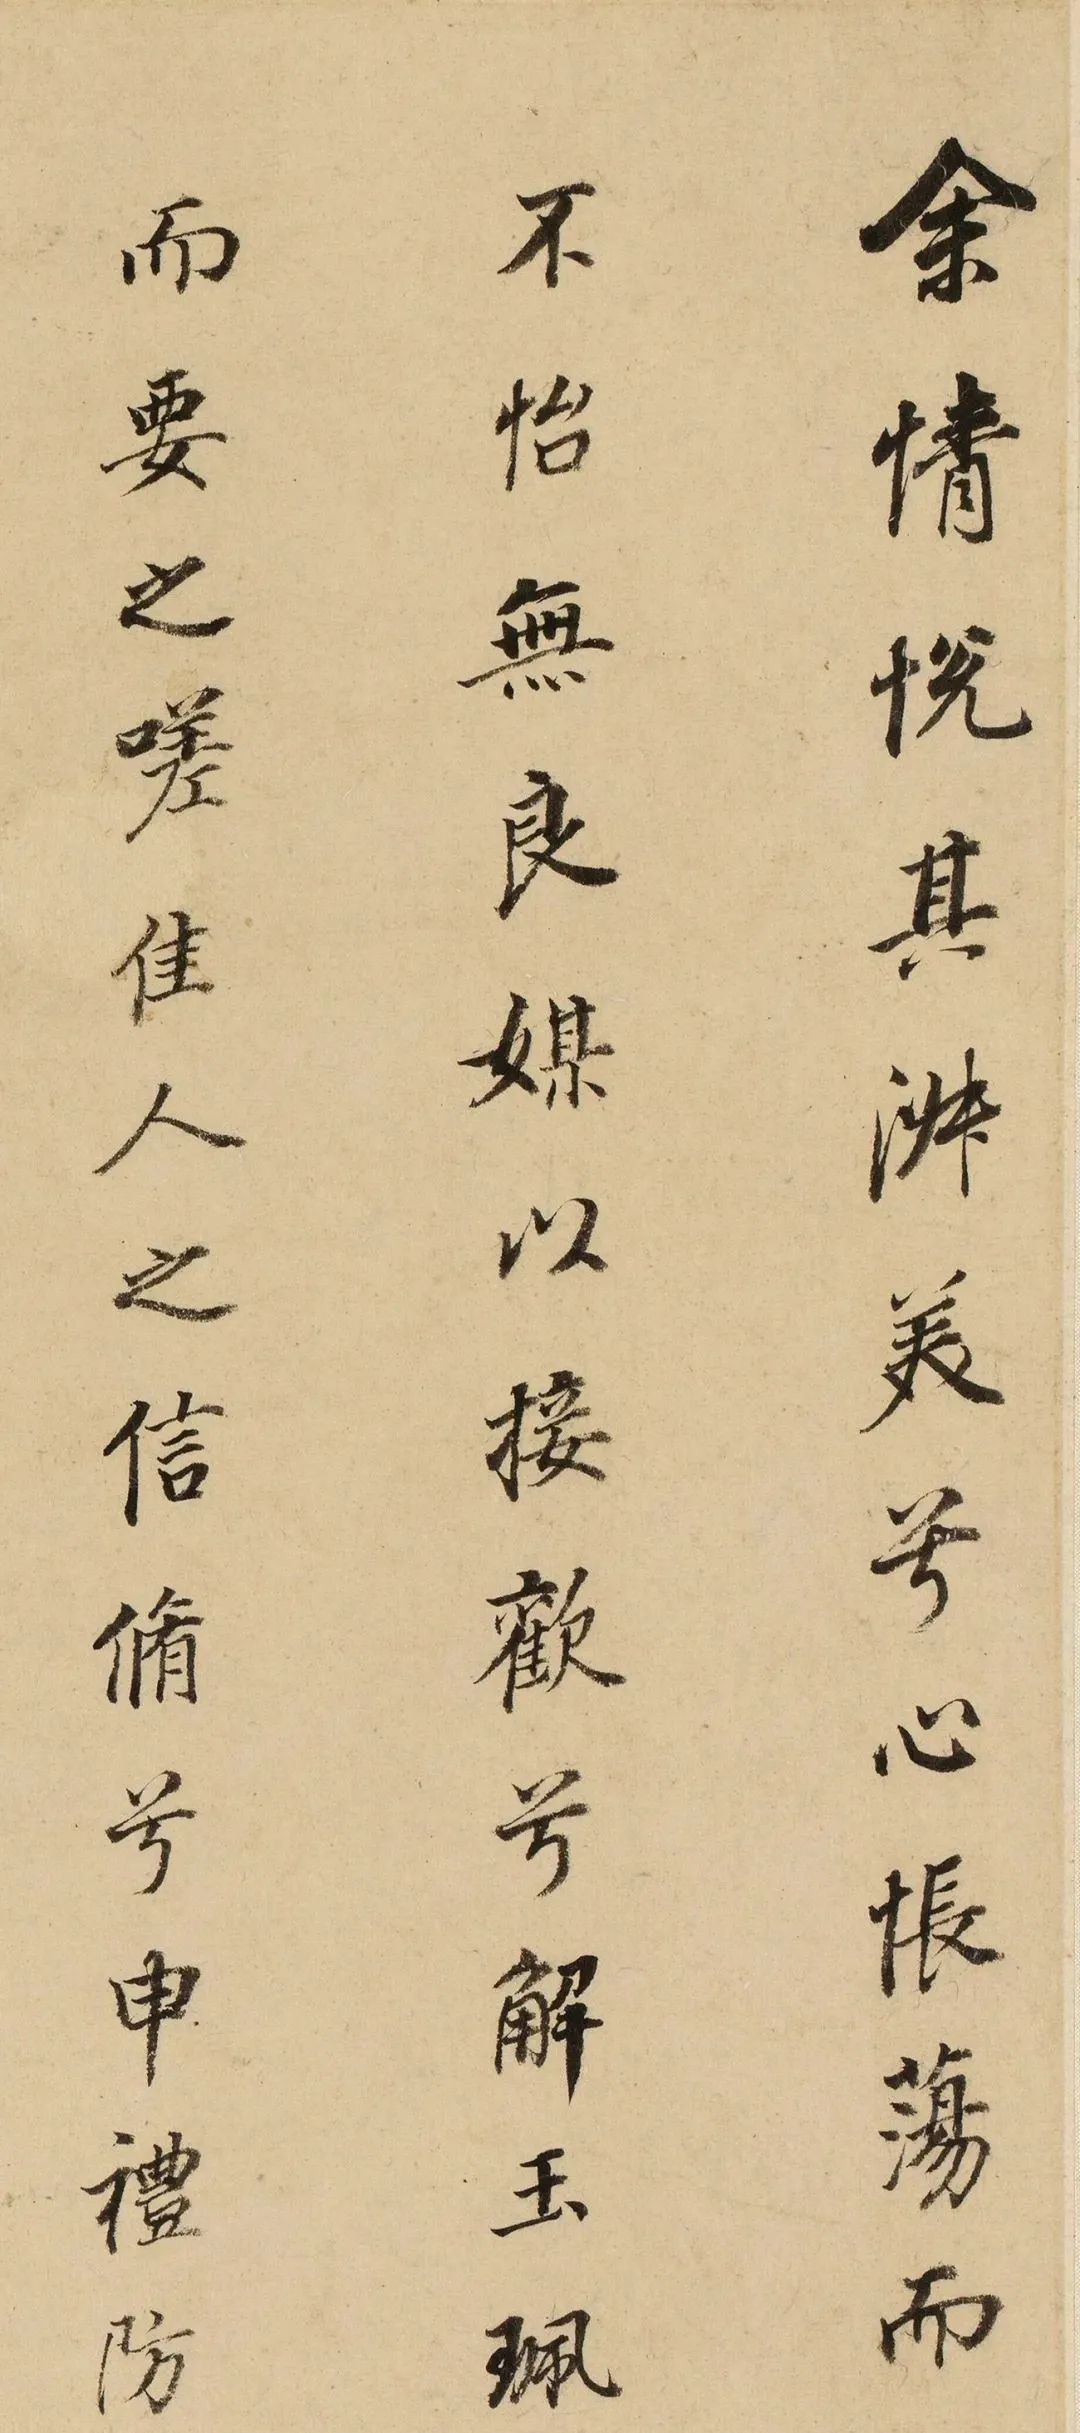 余情悅其淑美兮心悵蕩而
不怡無良媒以接歡兮解玉珮
而要之嗟佳人之信脩兮申禮防